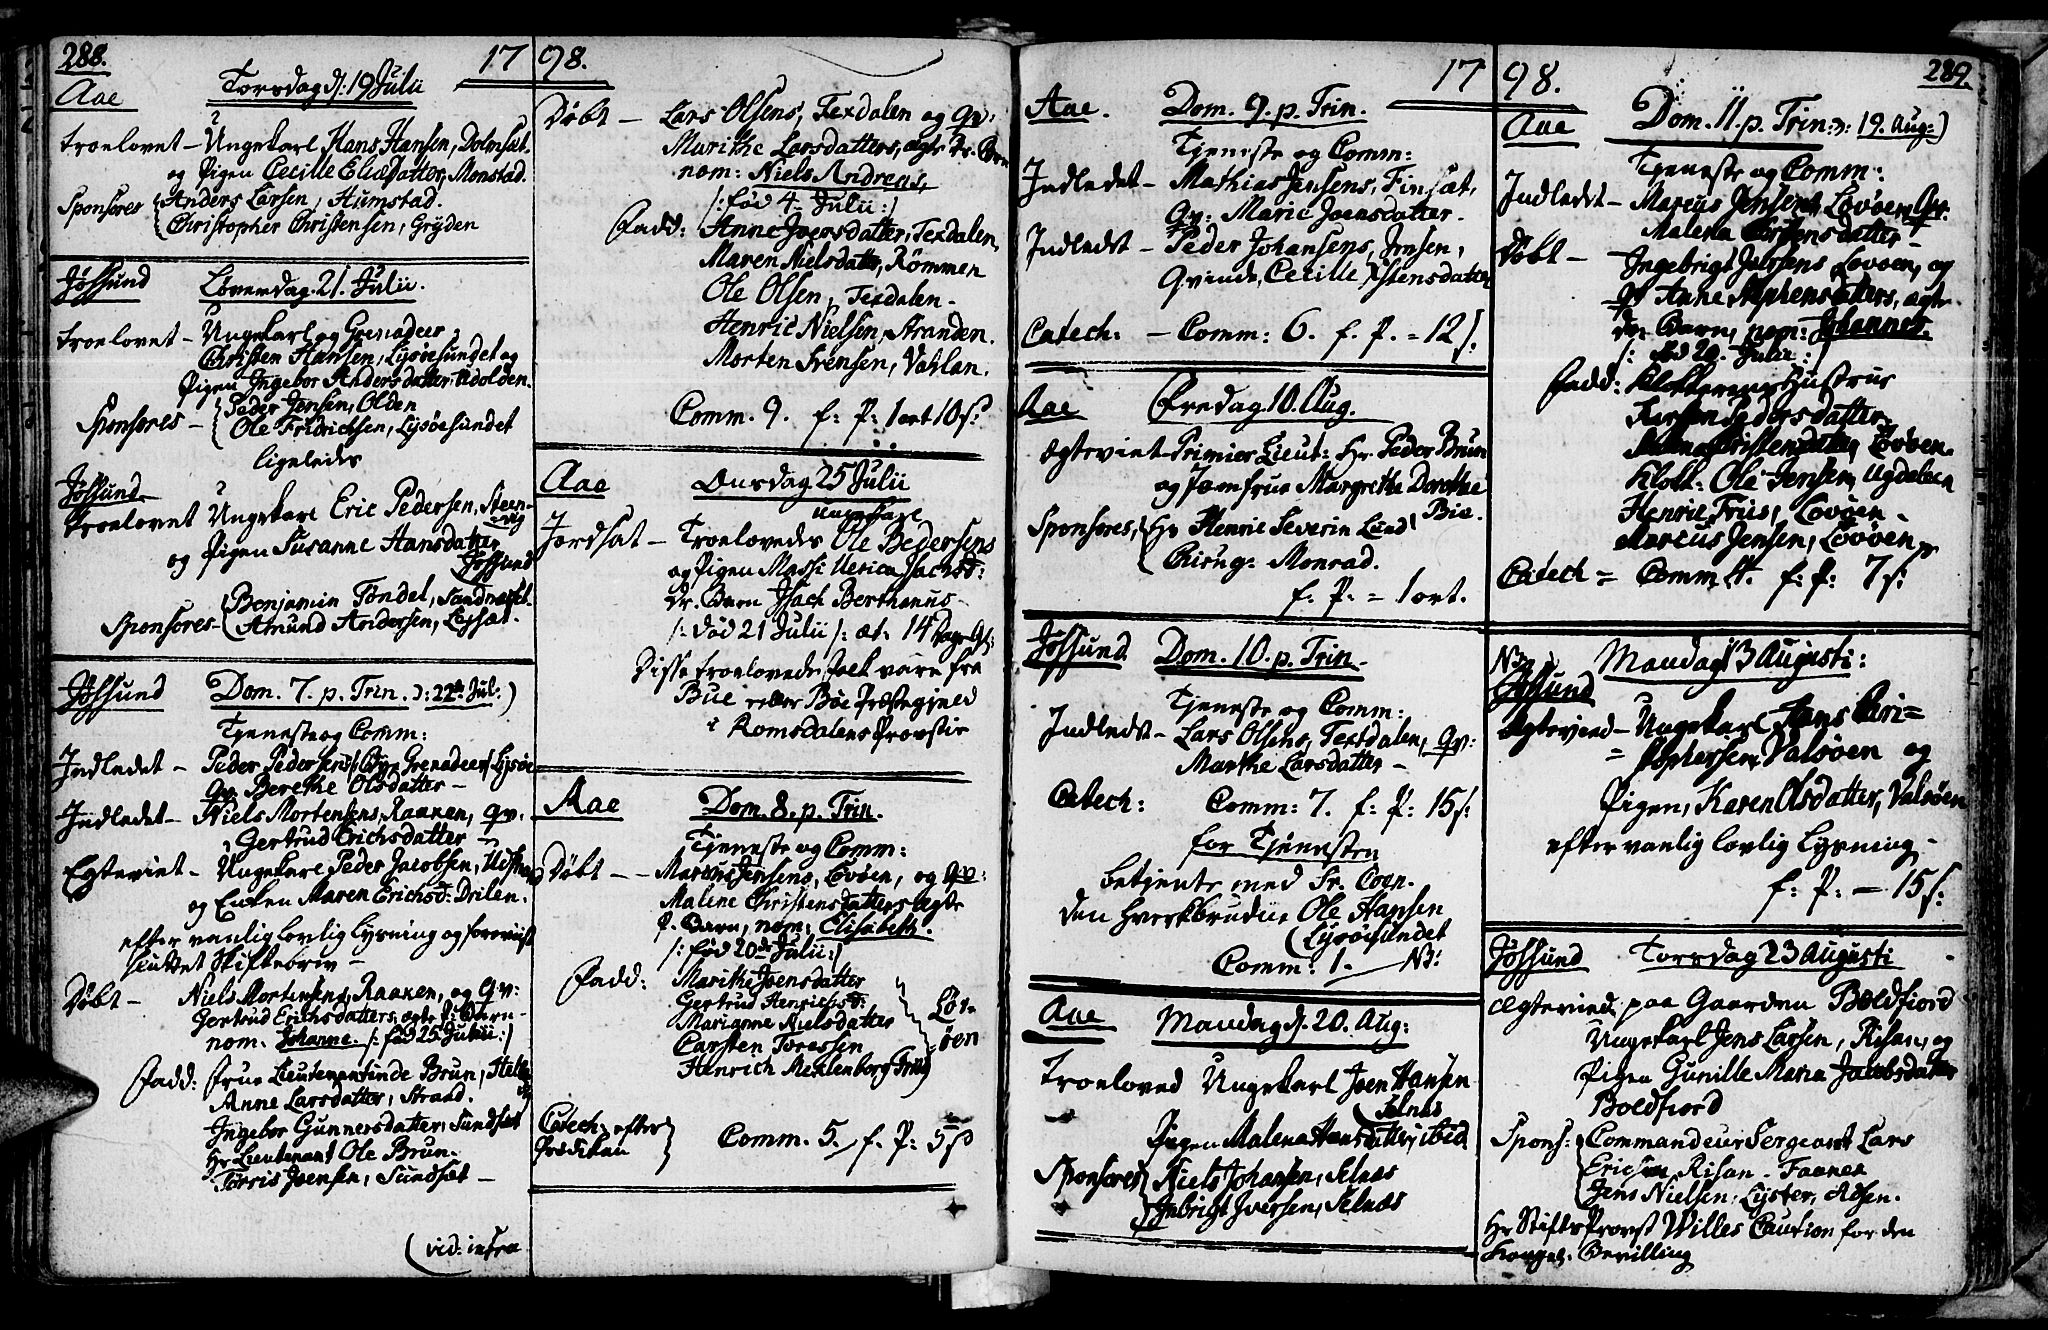 288.
1798.
Aae
Torsdag d: 19 Julii
troelovet – Ungekarl Hans Hansen, Dolmsæt.
og Pigen Cecille Eliædatter, Monstad.
Sponsores Anders Larsen, Humstad.
Christopher Christensen, Gryden
Jøssund
Løverdag 21. Julii.
troelovet – Ungekarl og Grenadeer
Christen Hansen, Lysøesundet og
Pigen Ingebor Andersdatter, Udolden.
Sponsores – Peder Jensen, Olden
Ole Fridrichsen, Lysøesundet
ligeledes
Jøssund
troelovet Ungekarl Eric Pedersen, Steen-
vig
og Pigen Susanne Hansdatter
Jøssund
Sponsores – Benjamin Tøndel, Sundnæsset.
Amund Andersen, Lejsæt.
Jøssund
Dom. 7. p. Trin. ɔ: 22de Jul.)
Tjeneste og Comm:
Indledet – Peder Pedersens Grenadeer Lysøe
qv. Berethe Olsdatter –
Indledet – Niels Mortensens, Raaken, qv.
Gertrud Erichsdatter –
Egteviet – Ungekarl Peder Jacobsen,
og Enken Maren Erichsd: Drilen.
efter vanlig lovlig Lysning og foreviist
sluttet Skiftebrev –
Døbt – Niels Mortensens, Raaken, og Qv:
Gertrud Erichsdatters ægte P. Barn –
nom. Johanne. /: fød 25 Julii :/
Fadd: Frue Lieutenantinde Brun,
Anne Larsdatter, Strand.
Ingebor Gunnersdatter, Sundsæt
Hr Lieutenant Ole Brun.
Torris Joensen, Sundsæt –
(vid: infra
Døbt – Lars Olsens, Texdalen og Qv:
Marithe Larsdatters, ægte Dr. Barn
nom: Niels Andreas,
/: fød 4. Julii :/
Fadd: Anne Joensdatter, Texdalen,
Maren Nielsdatter, Rømmen
Ole Olsen, Texdalen –
Henric Nielsen, Stranden.
Morten Svensen, Vahlan.
Comm. 9. f: P: 1 ort 10 s.
Aae
Onsdag 25 Julii
ungekarl
Jordsat – Troelovedes Ole Pedersens
og Pigen Massi Isachsd:
Dr. Barn Isach Berthanus –
/: død 21 Julii :/ æt: 14 Dage Gl:
Disse troelovede Folk vare fra
Bue eller Bøe Præstegjeld
i Romsdalens Provstie
Aae
Dom. 8. p. Trin.
Tjeneste og Comm:
Døbt – – Marcus Jensens, Løvøen, og Qv:
Malene Christensdatters ægte
P. Barn, nom: Elisabeth.
/: fød 20de Julii :/
Fadd: Marithe Joensdatter
Gertrud Henrichsd:
Marianne Nielsdatter
Carsten Toressen
Henrich Meklenborg Friis
Løv-
øen
Catech: efter
Prædiken
Comm. 5. f. P: 5 s
289.
1798.
Aae.
Dom. 9. p. Trin.
Tjeneste og Comm:
Indledet – Mathias Jensens, Finsæt,
Qv: Marie Joensdatter –
Indledet – Peder Johansens, Jensen,
Qvinde, Cecille Estensdatter
Catech: – Comm: 6. f. P. = 12 s.
Aae
Fredag 10. Aug.
ægteviet Primier Lieut: Hr Peder Brun
og Jomfrue Margrethe Dorothe
Bie.
Sponsores, Hr Henric Severin Lund
Chirug: Monrad.
f. P. = 1 ort.
Jøssund
Dom. 10. p. Trin.
Tjeneste og Comm:
Indledt – Lars Olsens, Texdalen, Qv:
Marthe Larsdatter –
Catech: Comm: 7. f: P: 15 s:
for Tjenesten
betjente med Sr. Coen.
den Ole Hansen
Lysøesundet
Comm: 1. – NB:
Aae
Mandag d. 20. Aug:
Troeloved Ungekarl Joen Hansen
Selnæs
Pigen Malena Hansdatter, ibid
Sponsores Niels Johansen, Selnæs
Ingbrigt Iversen, Selnæs
Aae
Dom. 11. p. Trin: ɔ: 19. Aug:)
Tjeneste og Comm:
Indledt – Marcus Jensens, Løvøen, Qv:
Malena Christensdatter –
Døbt – Ingebrigt Løvøen, og
qv Anne Stephensdatters, ægte
dr. Barn, nom: Johannes.
/: fød 20. Julii :/
Fadd: Klokkerens Hustrue
Kirsten Pedersdatter
Løvøen.
Klokk: Ole Jensen, Ugdalen
Henric Friis, Løvøen.
Marcus Jensen, Løvøen
Catech = Comm. f: P: 7 s:
NB
Jøssund
Mandag 13 Augusti:
ægteviet – Ungekarl Hans Chri=
=stophersen, Valsøen og
Pigen, Karen Olsdatter, Valsøen
efter vanlig lovlig Lysning –
f: P: – 15 s:
Jøssund
Torsdag 23 Augusti
ægteviet paa Gaarden Boldfiord
Ungekarl Jens Larsen, Risan, og
Pigen Gunille Maria Jacobsdatter
Boldfiord
Spons: Commandeur Sergeant Lars
Ericsen Risan –
Jens Nielsen, Lyster,
Hr StiftsProvst Willes Caution for den
Kongel: Bevilling